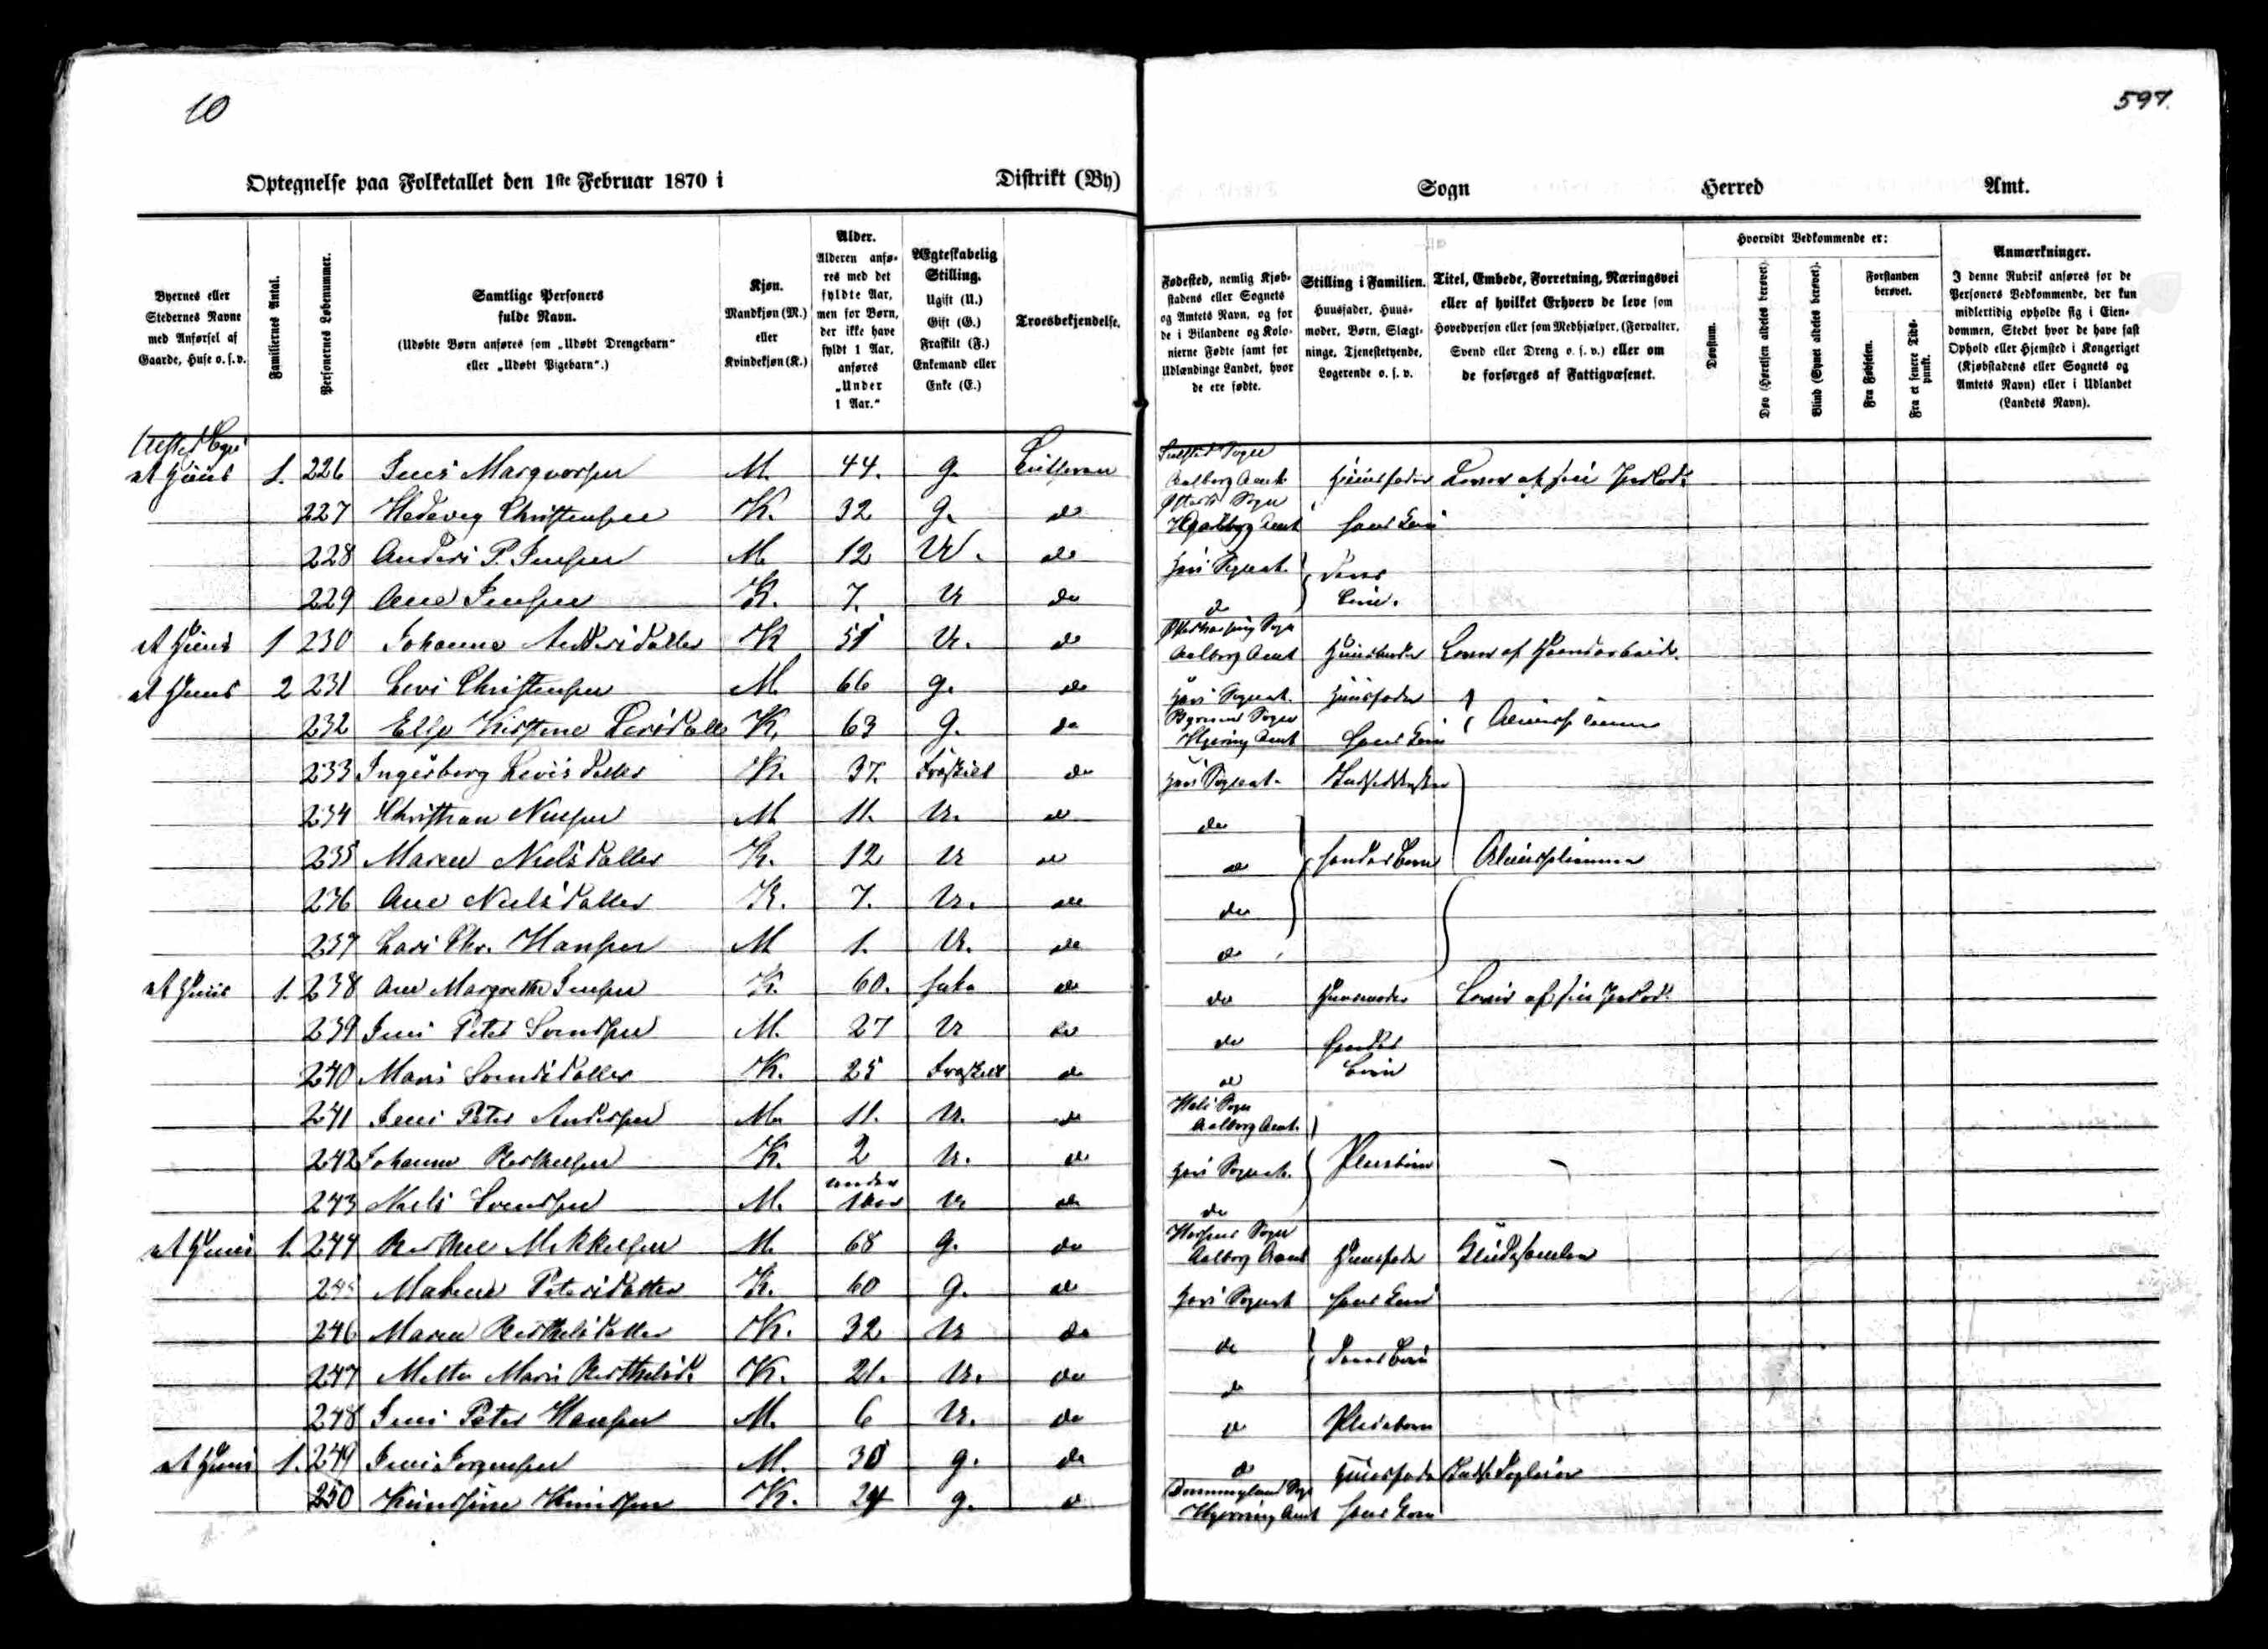 10
597.
Optegnelse paa Folketallet den 1ste Februar 1870 i Distrikt (By) Sogn Herred Amt.
Byernes eller Stedernes Navne med Anførsel af Gaarde, Huse o. s. v.
Familiernes Antal.
Personernes Løbenummer.
Samtlige Personers fulde Navn.
(Udøbte Børn anføres som „Udøbt Drengebarn" eller „Udøbt Pigebarn".)
Kjøn.
Mandkjøn (M.) eller Kvindekjøn (K.)
Alder.
Alderen anføres med det fyldte Aar, men for Børn, der ikke have fyldt 1 Aar, anføres „Under 1 Aar."
Ægteskabelig Stilling.
Ugift (U.)
Gift (G.)
Fraskilt (F.)
Enkemand eller Enke (E.)
Troesbekjendelse.
Fødested, nemlig Kjøbstadens eller Sognets og Amtets Navn, og for de i Bilandene og Kolonierne Fødte samt for Udlændinge Landet, hvor de ere fødte.
Stilling i Familien.
Huusfader, Huusmoder, Børn, Slægtninge, Tjenestetyende, Logerende o. s. v.
Titel, Embede, Forretning, Næringsvei eller af hvilket Erhverv de leve som Hovedperson eller som Medhjælper, (Forvalter, Svend eller Dreng o. s. v.) eller om de forsørges af Fattigvæsenet.
Hvorvidt Vedkommende er:
Døvstum.
Døv (Hørelsen aldeles berøvet).
Blind (Synet aldeles berøvet).
Forstanden berøvet.
Fra Fødselen.
Fra et senere Tidspunkt.
Anmærkninger.
I denne Rubrik anføres for de Personers Vedkommende, der kun midlertidig opholde sig i Eiendommen, Stedet hvor de have fast Ophold eller Hjemsted i Kongeriget (Kjøbstadens eller Sognets og Amtets Navn) eller i Udlandet (Landets Navn).
et Huus 1. 226 Jens Marqvorsen M. 44. g. Luthersk Sulsted Sogn Aalborg Amt Huusfader Lever af sin Jordlod
227 Hedevig Christensen K. 32 g. do Sogn Amt hans Kone
228 Anders P. Jensen M 12 U. do her i Sognet } deres
229 Ane Jensen K. 7. U do do Børn.
et Huus 1 230 Johanne Andersdatter K 51 U. do Sogn Aalborg Amt Huusmoder Lever af Haandarbeide.
et Huus 2 231 Levi Christensen M. 66 g. do her i Sognet Huusfader } Almisselemmer
232 Else Kirstine Levisdatter K. 63 g. do Sogn Hjørring Amt hans Kone
233 Ingerborg Levisdatter K. 37. Fraskilt do her i Sognet
234 Christian Nielsen M 11. U. do do
235 Maren Nielsdatter K. 12 U do do } hendes Børn Almisselemmer
236 Ane Nielsdatter K. 7. U. do do
237 Lars Chr. Hansen M 1. U. do do
et Huus 1. 238 Ane Margrethe Jensen K. 60. Enke do do Huusmoder Lever af sin Jordlod
239 Jens Peter Svendsen M. 27 U do do hendes
240 Maris Svendsdatter K. 25 Fraskilt do do Børn
241 Jens Peter Andersen M. 11. U. do Hals Sogn Aalborg Amt.
242 Johanne Berthelsen K. 2 U. do her i Sognet } Pleiebørn
243 Niels Svendsen M. under 1 Aar U do do
et Huus 1. 244 Berthel Mikkelsen M. 68 g. do Sogn Aalborg Amt Huusfader
245 Malene Petersdatter K. 60 g. do her i Sognet hans Kone
246 Maren Berthelsdatter K. 32 U do do } deres Børn
247 Mette Marie Berthelsd. K. 21. U. do do
248 Jens Peter Hansen M. 6 U. do do Pleiebarn
et Huus 1. 249 Jens Jørgensen M. 30 g. do do Huusfader
250 Knudsine Knudsen K. 24 g. do Dronninglund Sogn Hjørring Amt hans Kone